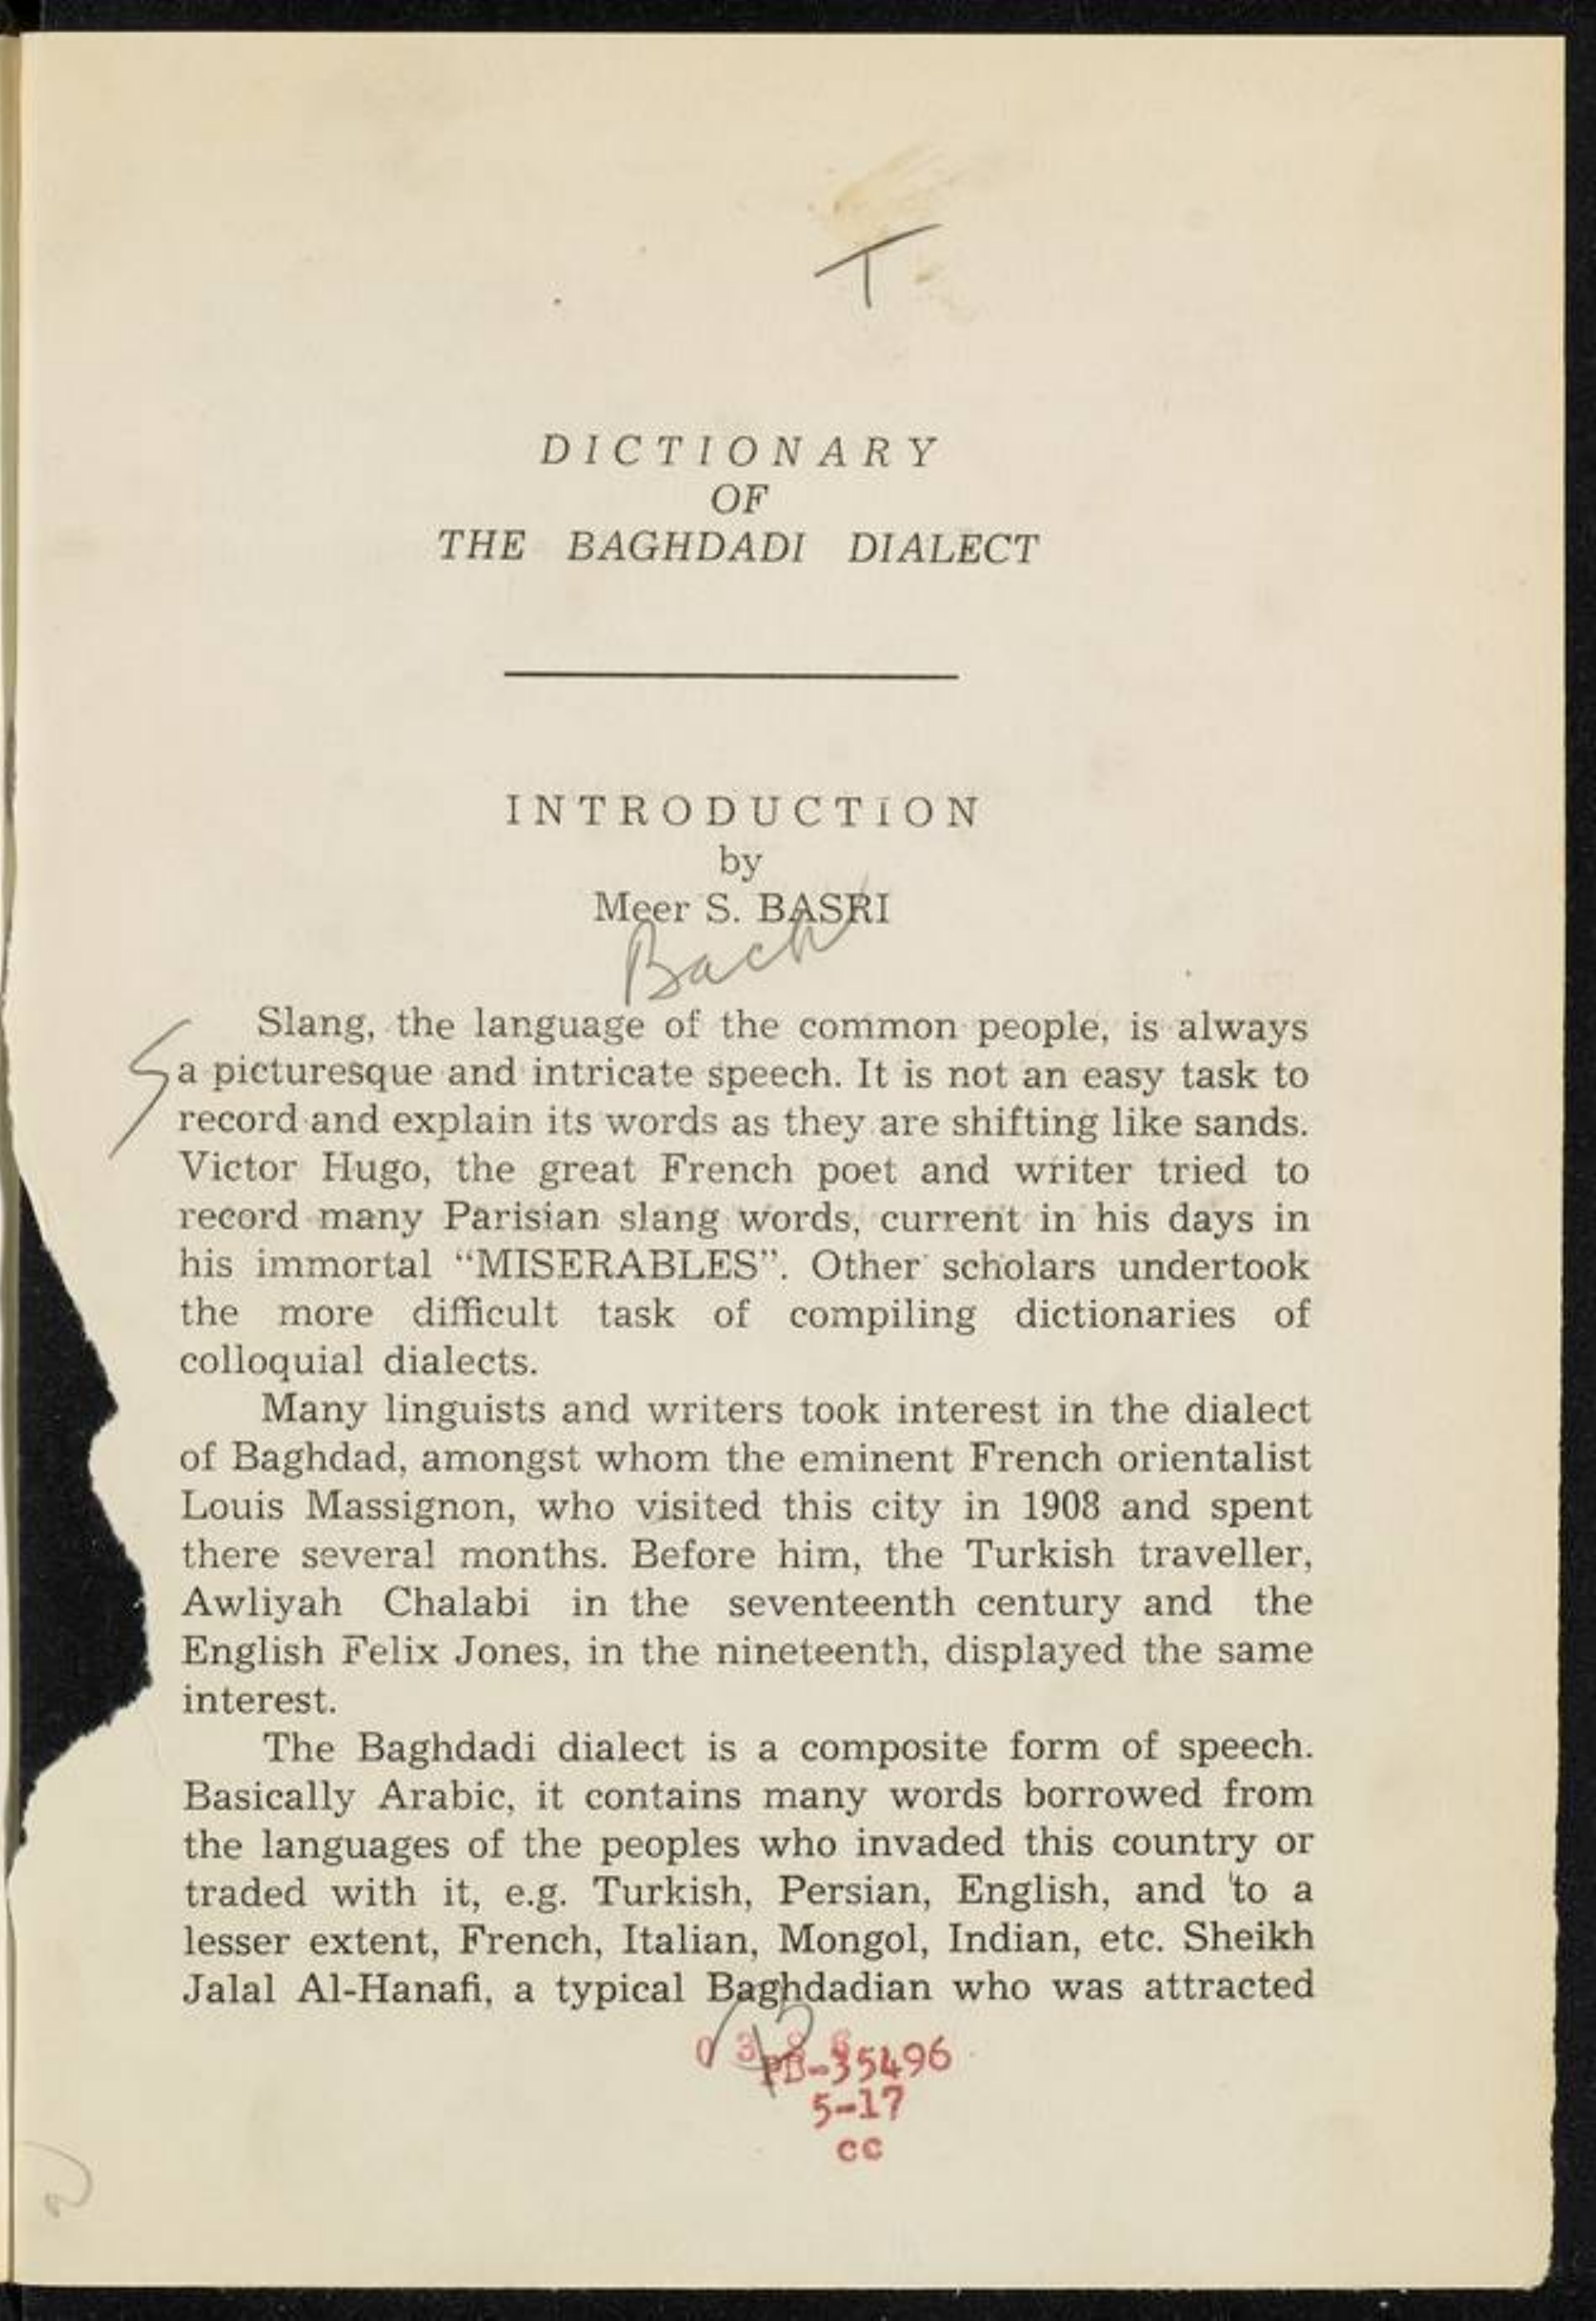 T
DICTIONARY
OF
THE BAGHDADI DIALECT
INTRODUCTION
by
Meer S. BASRI
Slang, the language of the common people, is always
a picturesque and intricate speech. It is not an easy task to
record and explain its words as they are shifting like sands.
Victor Hugo, the great French poet and writer tried to
record many Parisian slang words, current in his days in
his immortal “MISERABLES”. Other scholars undertook
the more difficult task of compiling dictionaries of
colloquial dialects.
Many linguists and writers took interest in the dialect
of Baghdad, amongst whom the eminent French orientalist
Louis Massignon, who visited this city in 1908 and spent
there several months. Before him, the Turkish traveller,
Awliyah Chalabi in the seventeenth century and the
English Felix Jones, in the nineteenth, displayed the same
interest.
The Baghdadi dialect is a composite form of speech.
Basically Arabic, it contains many words borrowed from
the languages of the peoples who invaded this country or
traded with it, e.g. Turkish, Persian, English, and to a
lesser extent, French, Italian, Mongol, Indian, etc. Sheikh
Jalal Al-Hanafi, a typical Baghdadian who was attracted
PB-35496
5-17
cc